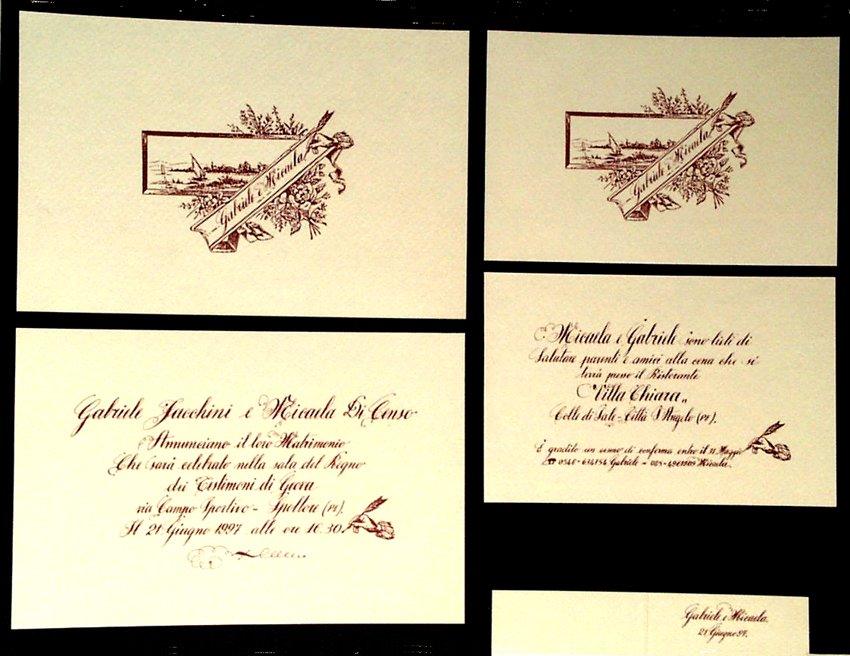 Gabriele e Micaela
Gabriele e Micaela
Gabriele Jacchini e Micaela Di Censo
Annunciano il loro Matrimonio
Che sarà celebrato nella sala del Regno
dei Testimoni di Geova
via Campo Sportivo - Spoltore (PE).
Il 21 Giugno 1997 alle ore 16.30
Micaela e Gabriele sono lieti di
Salutare parenti e amici alla cena che si
terrà presso il Ristorante
"Villa Chiara"
Colle di Sale - Città S. Angelo (PE).
È gradito un cenno di conferma entro il 31 Maggio
Gabriele - Micaela.
Gabriele e Micaela.
21 Giugno 97.